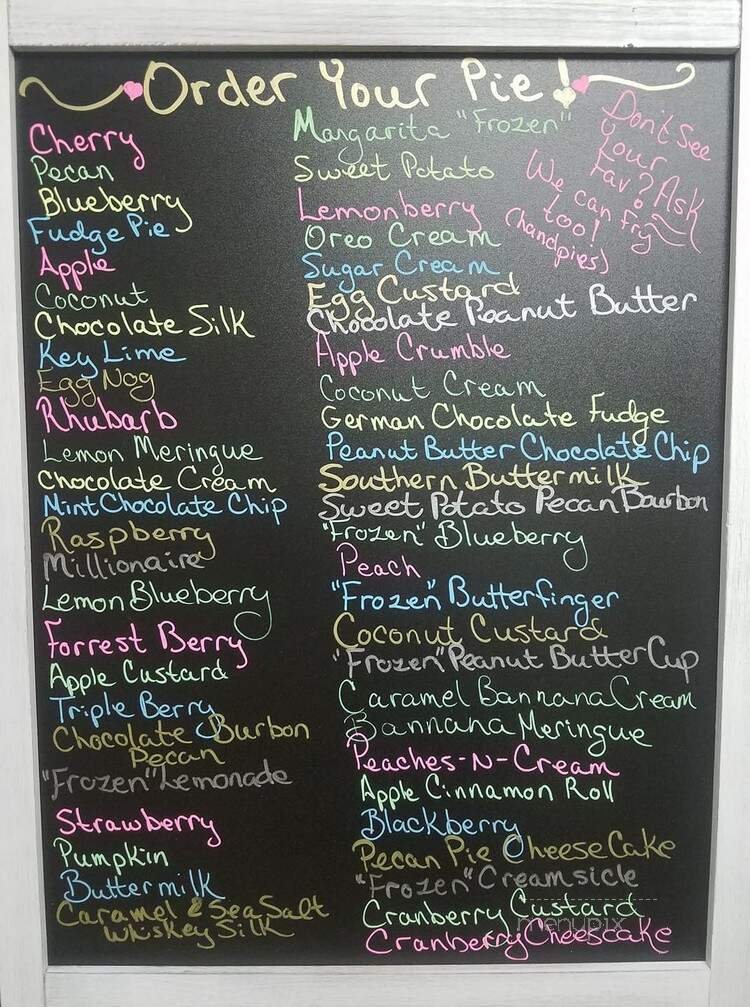 Order Your Pie!
Cherry
Pecan
Blueberry
Fudge Pie
Apple
Coconut
Chocolate Silk
Key Lime
Egg Nog
Rhubarb
Lemon Meringue
Chocolate Cream
Mint Chocolate Chip
Raspberry
Millionaire
Lemon Blueberry
Forrest Berry
Apple Custard
Triple Berry
Chocolate Burbon
Pecan
"Frozen" Lemonade
Strawberry
Pumpkin
Buttermilk
Caramel & Sea Salt
Whiskey Silk
Margarita "Frozen"
Sweet Potato
Lemonberry
Oreo Cream
Sugar Cream
Egg Custard
Chocolate Peanut Butter
Apple Crumble
Coconut Cream
German Chocolate Fudge
Peanut Butter Chocolate Chip
Southern Buttermilk
Sweet Potato Pecan Bourbon
"Frozen" Blueberry
Peach
"Frozen" Butterfinger
Coconut Custard
"Frozen" Peanut Butter Cup
Caramel Bannana Cream
Bannana Meringue
Peaches-N-Cream
Apple Cinnamon Roll
Blackberry
Pecan Pie Cheese Cake
"Frozen" Creamsicle
Cranberry Custard
Cranberry Cheescake
Don't See
Your
Fav? Ask
We can fry
too!
(handpies)
menupix